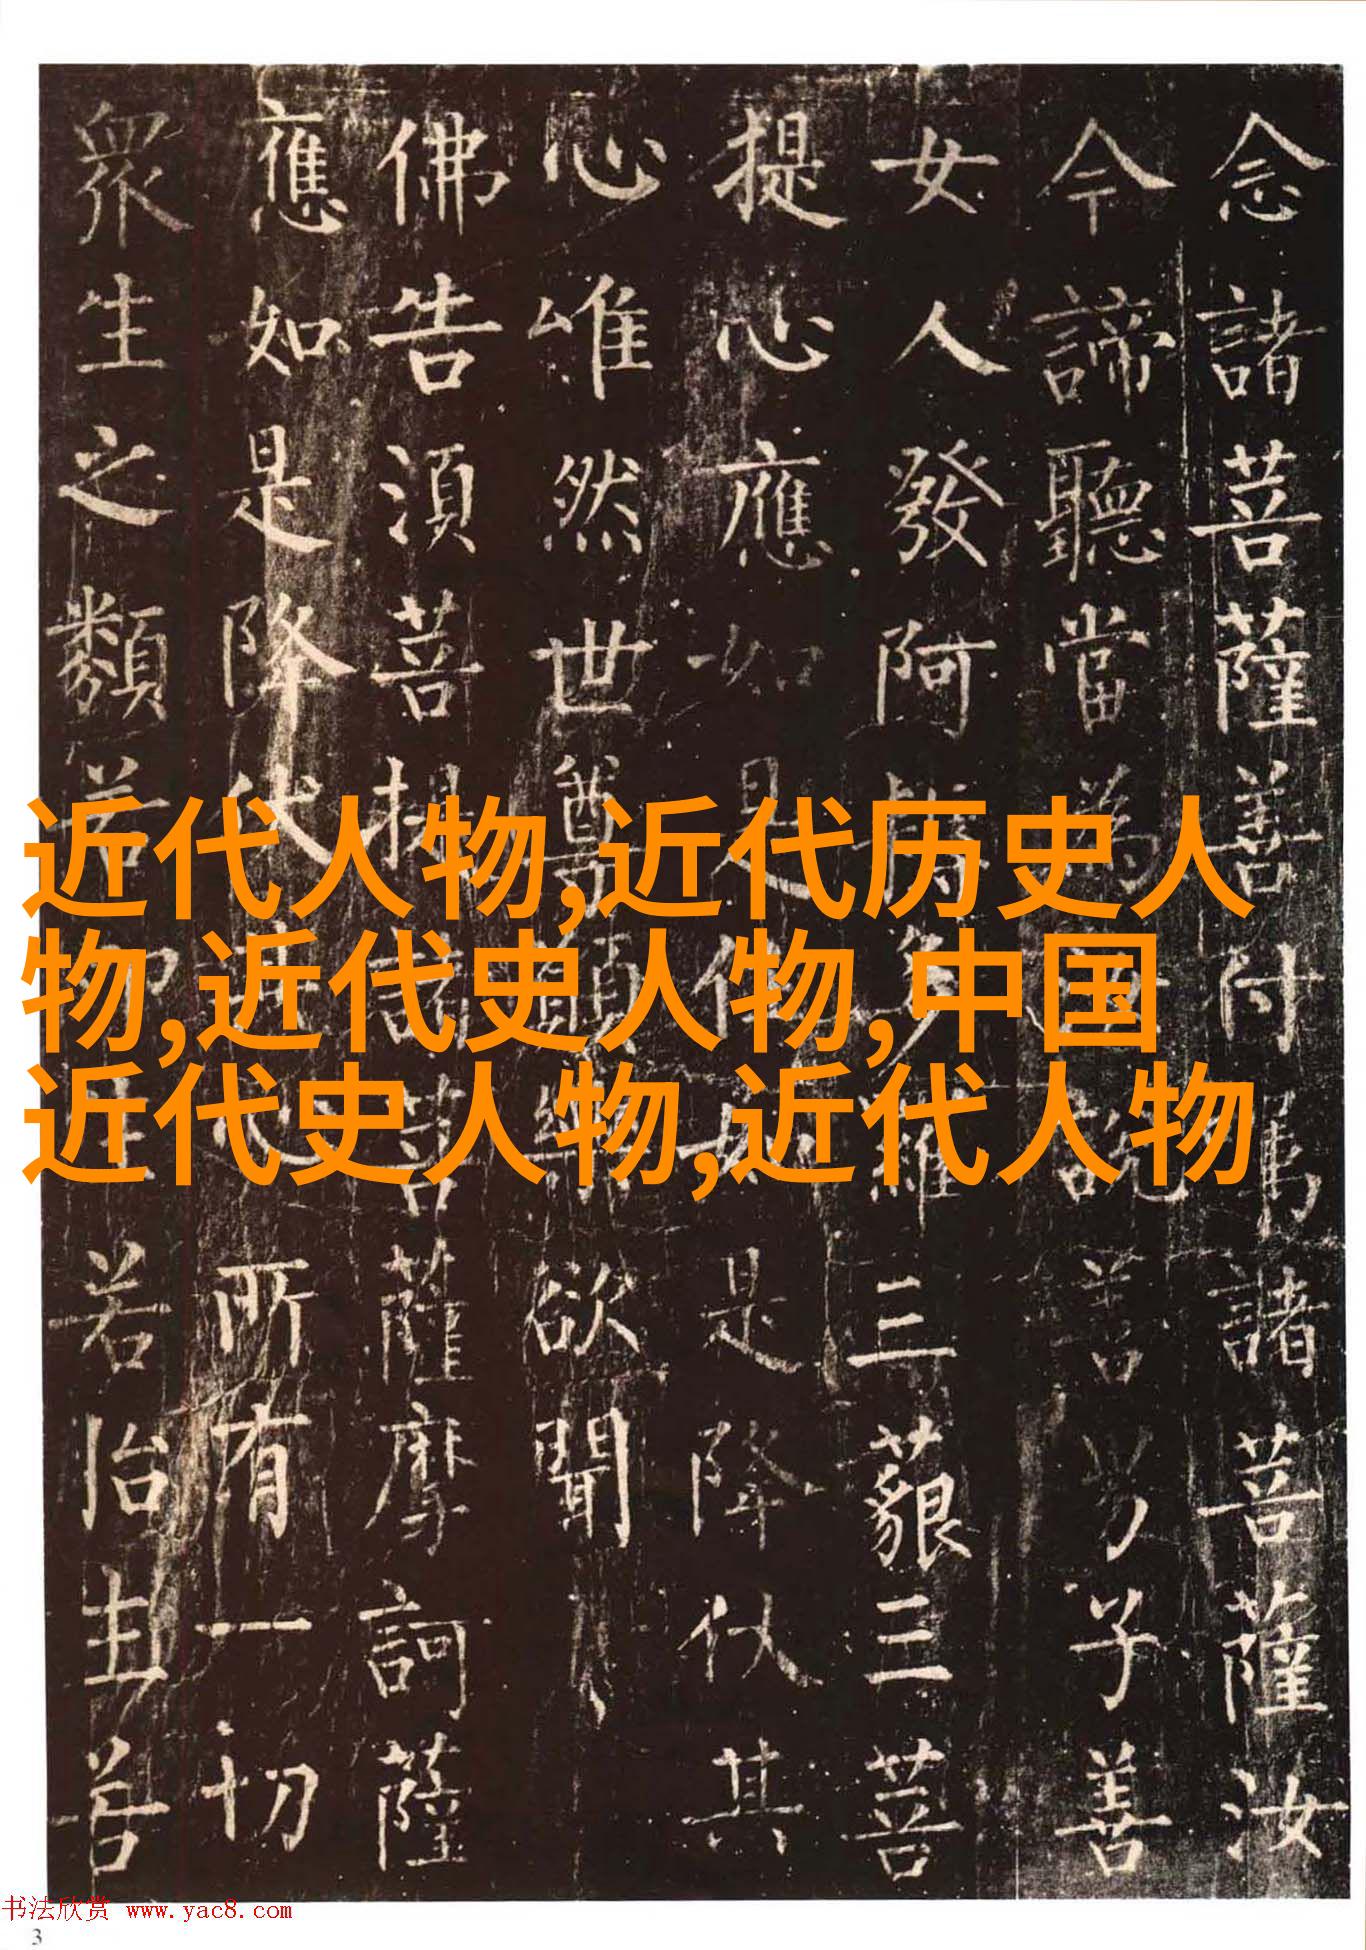 念諸菩薩善付諸菩薩汝
今諦聽當為說善男子善
女人發阿耨多羅三藐三菩
提心應如是住如是降伏其
心唯然世尊願欲聞
佛告須菩提諸菩薩摩訶薩
應如是降伏心所有一切
衆生之類若卵生若胎生若
近代人物,近代历史人
物,近代史人物,中国
近代史人物,近代人物
书法欣赏 www.yac8.com
3